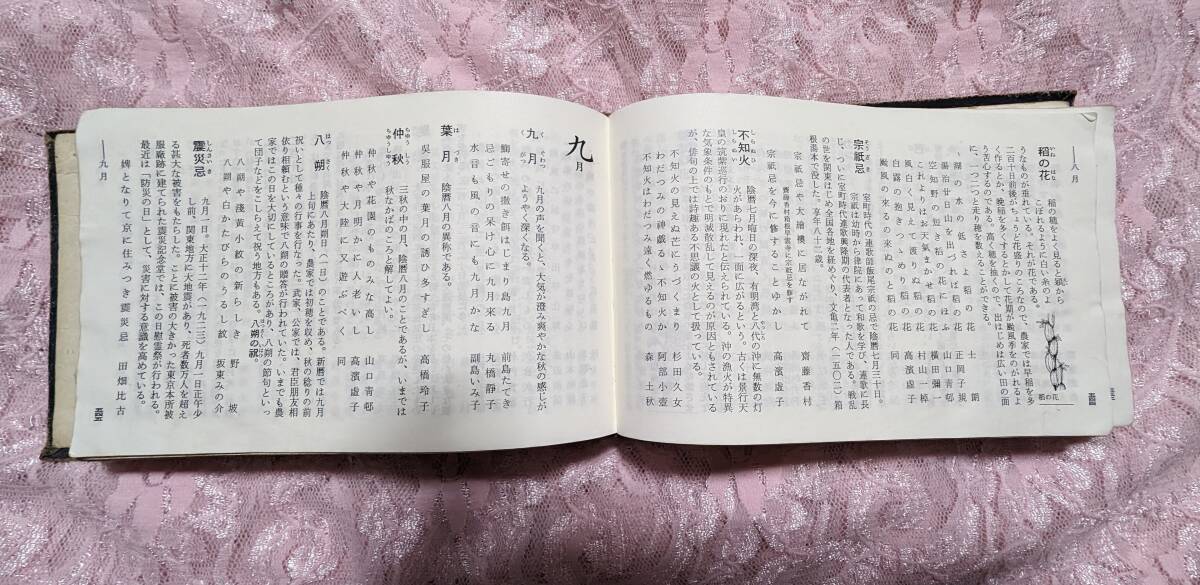 ――八月
稲の花
いねのはな
稲の穂をよく見ると穎から
こぼれるように白い糸のよ
うなものが垂れている。それが花である。
二百十日前後がちょうど花盛りのころなので、農家では早稲を多
く作るとか、晩稲を多くするとかして花期が颱風季をのがれるよ
う苦心するのである。高く穂を抽くので、出はじめは広い田の面
に、一つ二つと走り穂を数えることができる。
稲の花
湖の水の低さよ稲の花 士朗
湯治廿日山を出づれば稲の花 正岡子規
空知野の短き稲の花にほふ 山口青邨
これよりはお天気まかせ稲の花 横田彌一
白く見えて渡りぬ稲の花 村山
風の白く見えて 高濱虚子
白露の抱きつゝめり稲の花 同
颱風の来る来ぬと稲の花 同
宗祇忌
そうぎき
室町時代の連歌師飯尾宗祇の忌で陰暦七月三十日。
宗祇は幼時から律院にあって和歌を学び、連歌に長
じ、ついに室町時代連歌興隆期の代表者となった人である。戦乱
の世を関東はじめ全国各地を経めぐり、文亀二年(一五〇二)箱
根湯本で没した。享年八十二歳。
宗祇忌や大檜樓に居ながれて 齋藤香村
齋藤香村箱根早雲寺に宗祇忌を修す
宗祇忌を今に修することかしこ 高濱虚子
不知火
しらぬひ
陰暦七月晦日の深夜、有明湾と八代の沖に無数の灯
火があらわれ、一面に広がるという。古くは景行天
皇の筑紫巡行のおりに現れたと伝えられている。沖の漁火が特異
な気象条件のもとで明滅散乱して見えるのが原因ともされている
が、俳句の上では詩趣ある不思議の火として扱っている。
不知火の見えぬ芒にうづくまり 杉田久女
わだつみの神戯るゝ不知火か 阿部小壺
不知火のわだつみ遠く燃ゆるもる 森土秋
九月
九月
くぐわつ
九月の声を聞くと、大気が澄み爽やかな秋の感じが
ようやく深くなる。
鯛寄せの撒き餌はじまり島九月 前島たてき
水音も風の音にも九月かな 副島いみ子
葉月
はづき
陰暦八月の異称である。
呉服屋の葉月の誘ひ多すぎし 高橋玲子
仲秋
ちゅうしう
三秋の中の月、陰暦八月のことであるが、いまでは
秋なかばのころと解してよい。
仲秋や花園のものみな高し 山口青邨
仲秋や月明かに人老いし 高濱虚子
仲秋や大陸に又遊ぶべく 同
八朔
はっさく
陰暦八月朔日(一日)のことである。新暦では九月
上旬にあたり、農家では初穂を収め、秋の稔りの前
祝いとして種々の行事を行なった。武家、公家では、君臣朋友相
依り相頼むという意味で八朔の贈答が行われていた。いまでも農
家ではこの日を大切にしているところがあり、八朔の節句といっ
て団子などをこしらえて祝う地方もある。八朔の祝。
八朔や淺黄小紋の新らしき 野坡
八朔や白かたびらのうるし紋 坂東みの介
震災忌
しんさいき
九月一日。大正十二年(一九二三)九月一日正午少
し前、関東地方に大地震があり、死者数万人を超え
る甚大な被害をもたらした。ことに被害の大きかった東京本所被
服廠跡に建てられた震災記念堂では、この日慰霊祭が行われる。
最近は「防災の日」として、災害に対する意識を高めている。
婢となりて京に住みつき震災忌 田畑比古
――九月